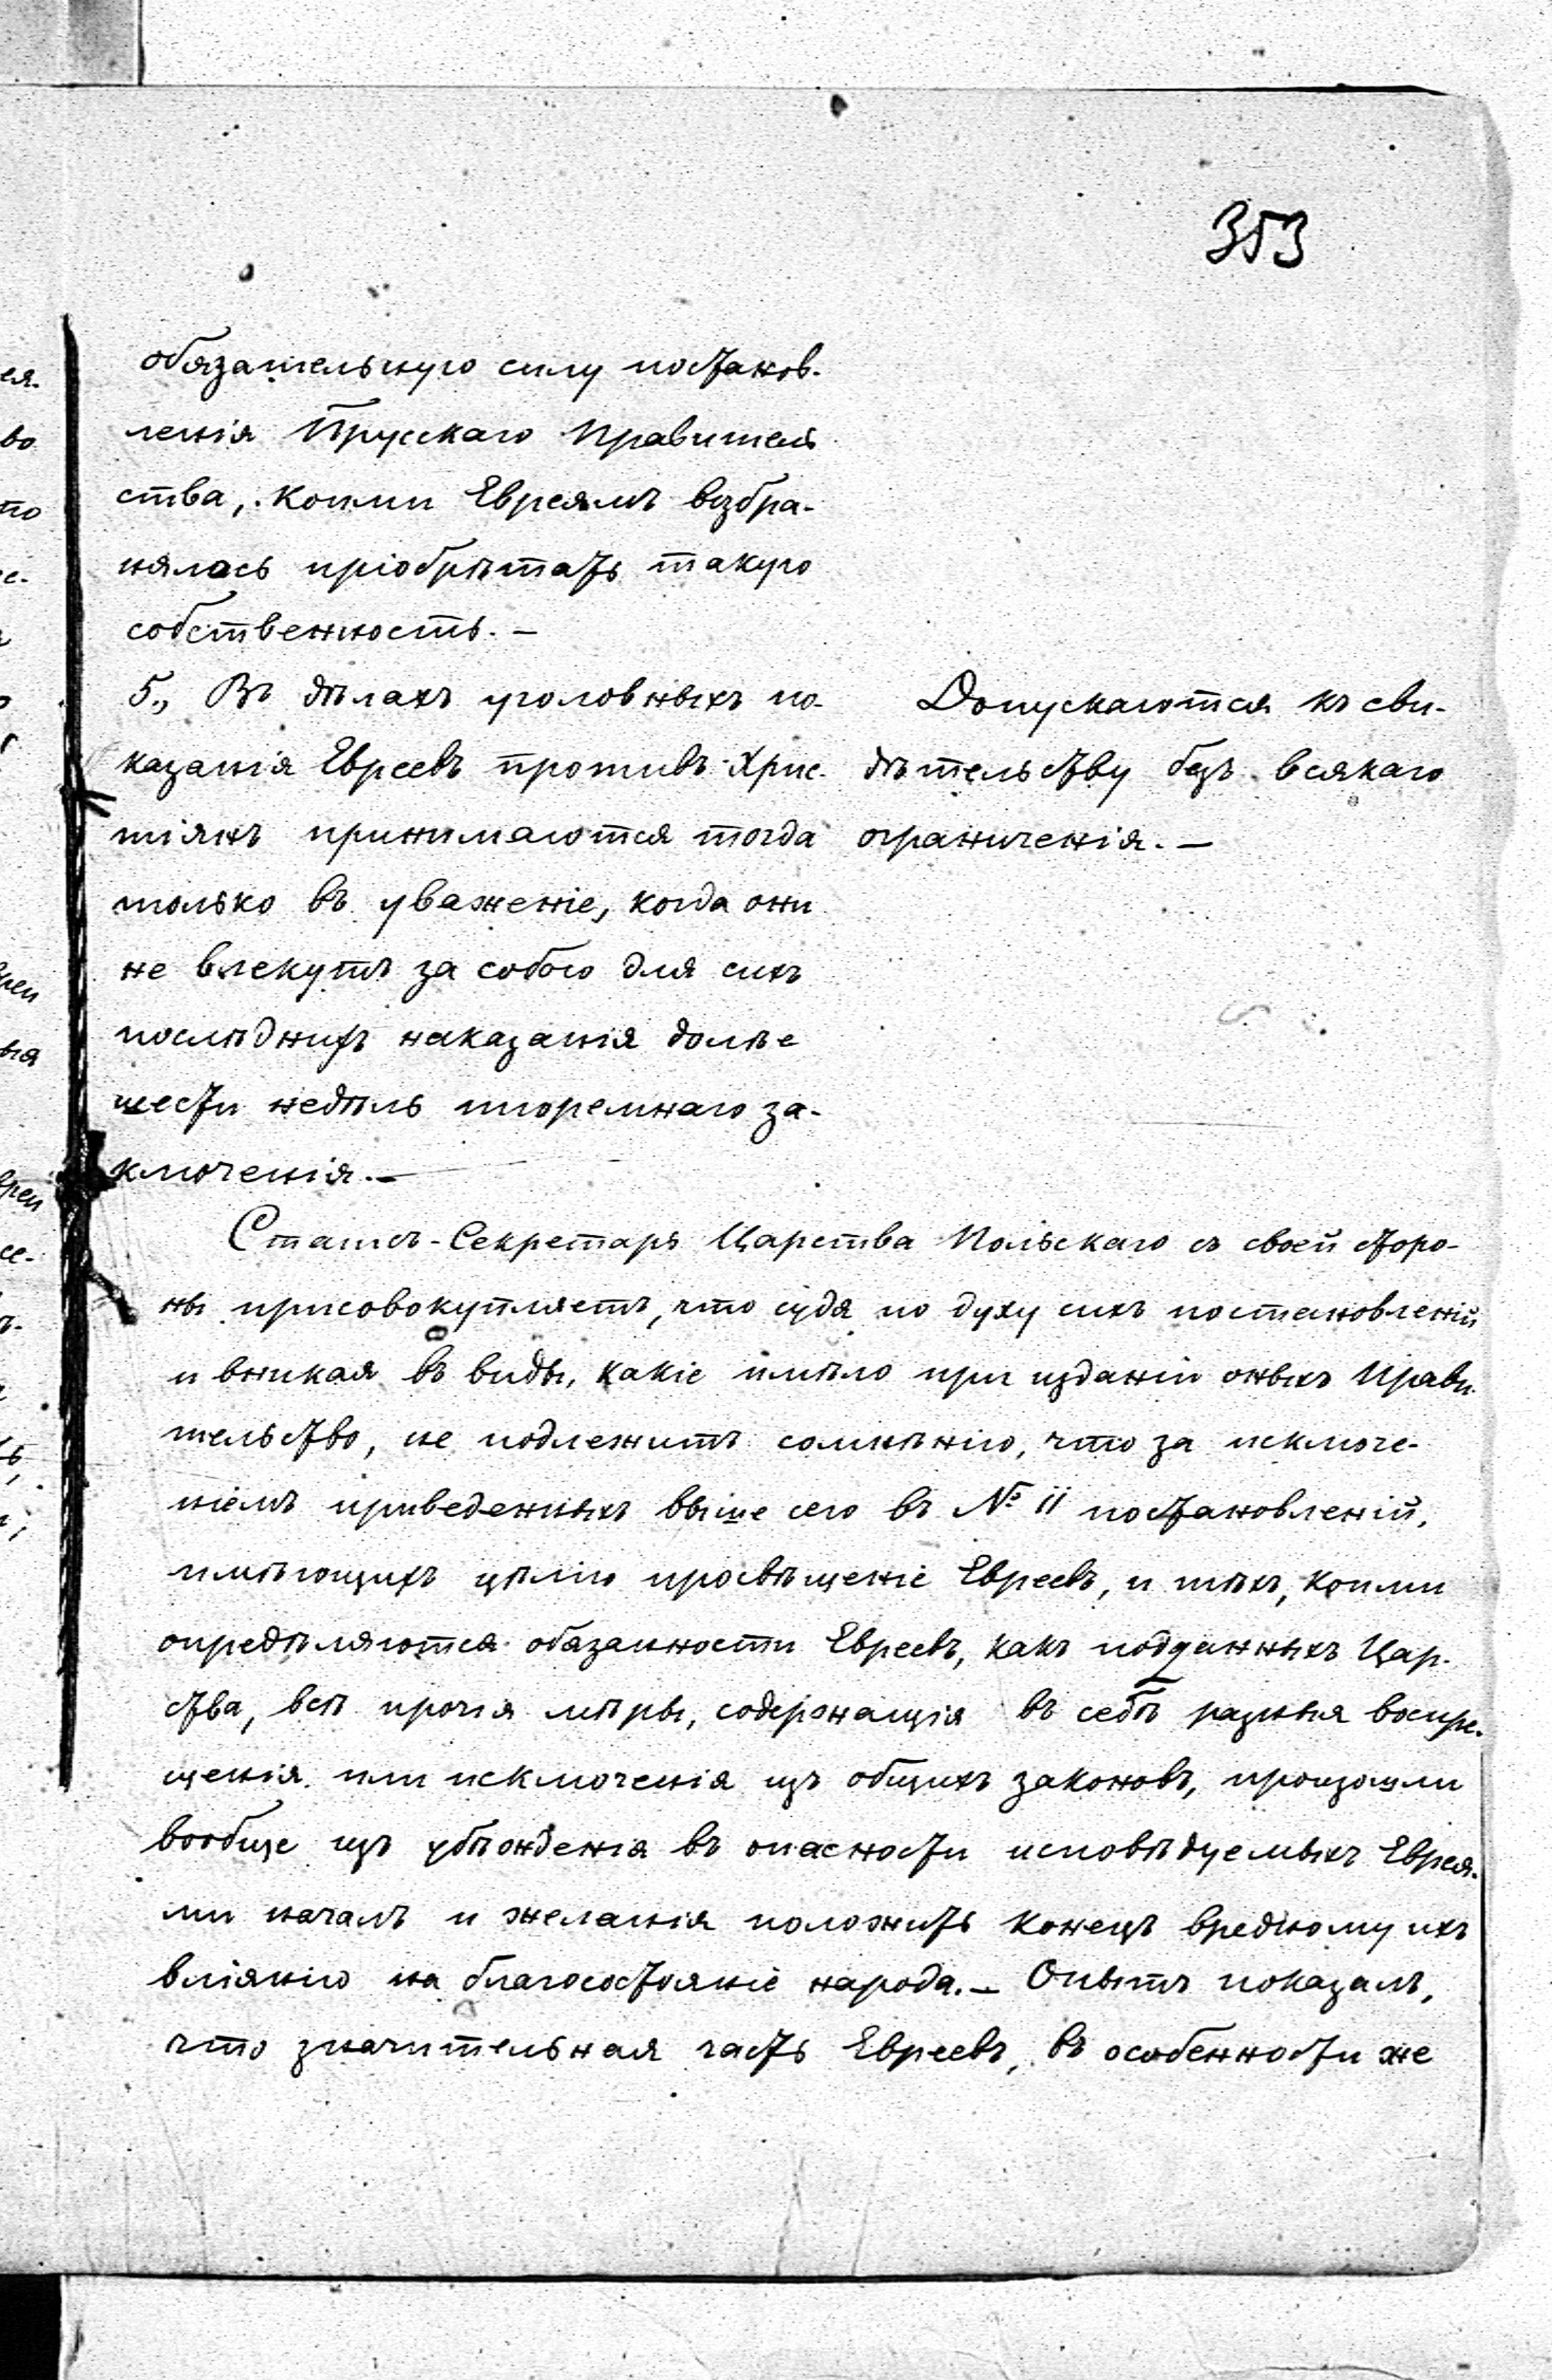 353
обязательную силу постанов-
ленія Прусскаго Правитель
ства, коими Евреямъ возбра-
нялось пріобрѣтать такую
собственность. —
5., Въ дѣлахъ уголовныхъ по-
казанія Евреевъ противъ Хрис-
тіянъ принимаются тогда
только въ уваженіе, когда они
не влекутъ за собою для сихъ
послѣднихъ наказанія долѣе
шести недѣль тюремнаго за-
ключенія. —
Допускаются къ сви-
дѣтельству безъ всякаго
ограниченія. —
Статсъ-Секретарь Царства Польскаго съ своей сторо-
ны присовокупляетъ, что судя по духу сихъ постановленій
и вникая въ виды, какіе имѣло при изданіи оныхъ Прави-
тельство, не подлежитъ сомнѣнію, что за исключе-
ніемъ приведенныхъ выше сего въ № 11 постановленій,
имѣющихъ цѣлію просвѣщеніе Евреевъ, и тѣхъ, коими
опредѣляются обязанности Евреевъ, какъ подданныхъ Цар-
ства, всѣ прочія мѣры, содержащія въ себѣ разныя воспре-
щенія или исключенія изъ общихъ законовъ, произошли
вообще изъ убѣжденія въ опасности исповѣдуемыхъ Еврея-
ми началъ и желанія положить конецъ вредному ихъ
вліянію на благосостояніе народа. — Опытъ показалъ,
что значительная часть Евреевъ, въ особенности же